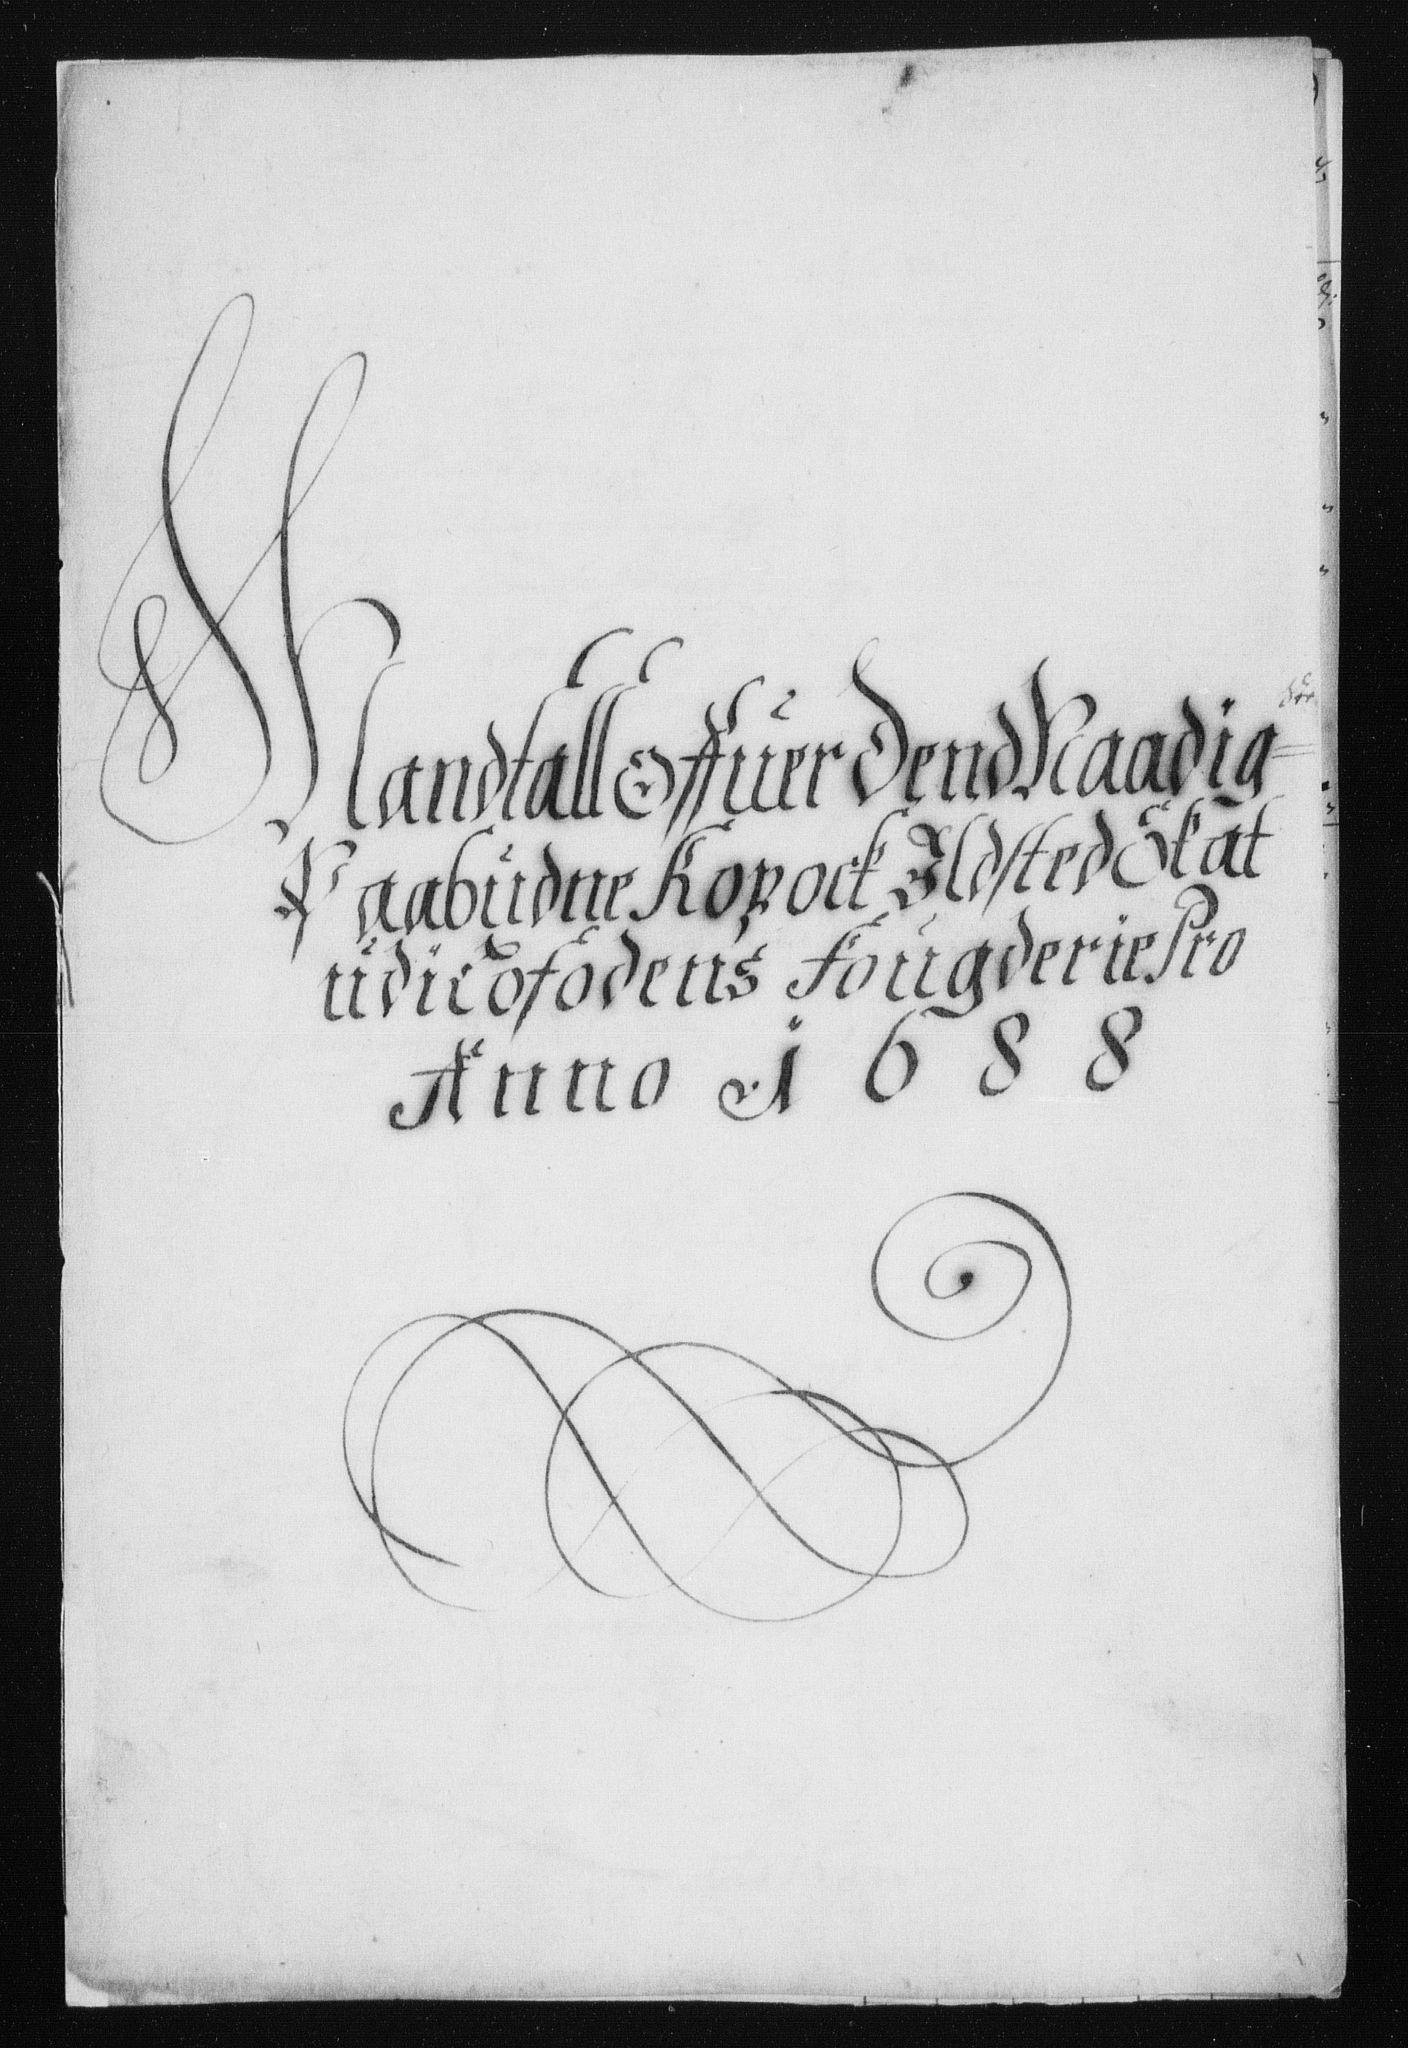 Mandtall Offuer Dend Naadig=
Paabudne Kop ock Ildsted Skat
udi Lofodens Fougderie Pro
Anno 1688